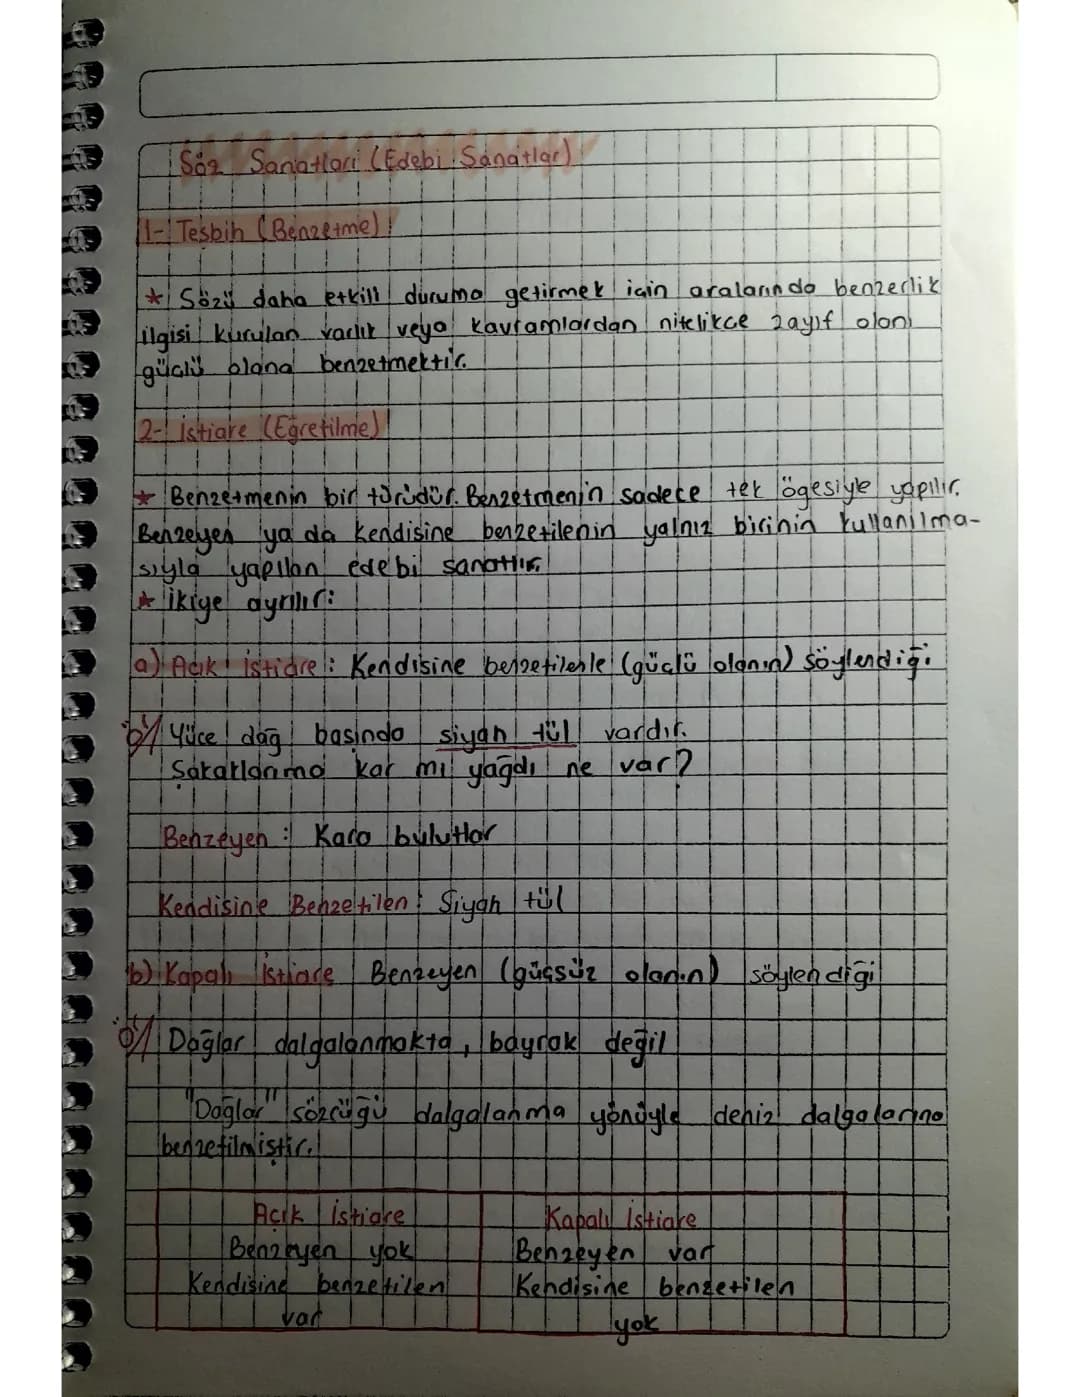 Söz Sanatları (Edebi Sanatlar)
1- Teşbih (Benzetme)
★ Sözü daha etkili duruma getirmek için aralarında benzerlik
ilgisi kurulan varlık veya kavramlardan nitelikçe zayıf olanı
güçlü olana benzetmektir.
2- İstiare (Eğretilme)
★ Benzetmenin bir türüdür. Benzetmenin sadece tek ögesiyle yapılır.
Benzeyen ya da kendisine benzetilenin yalnız birinin kullanılma-
sıyla yapılan edebi sanattır.
★ İkiye ayrılır:
a) Açık istiare: Kendisine benzetilenle (güçlü olanın) söylendiği
Ö/ Yüce dağ başında siyah tül vardır.
Şakaklarıma kar mı yağdı ne var?
Benzeyen: Kara bulutlar
Kendisine Benzetilen: Siyah tül
b) Kapalı İstiare Benzeyen (güçsüz olanın) söylendiği
Ö/ Dağlar dalgalanmakta, bayrak değil
"Dağlar" sözcüğü dalgalanma yönüyle deniz dalgalarına
benzetilmiştir.
Açık İstiare Kapalı İstiare
Benzeyen yok Benzeyen var
Kendisine benzetilen Kendisine benzetilen
var yok